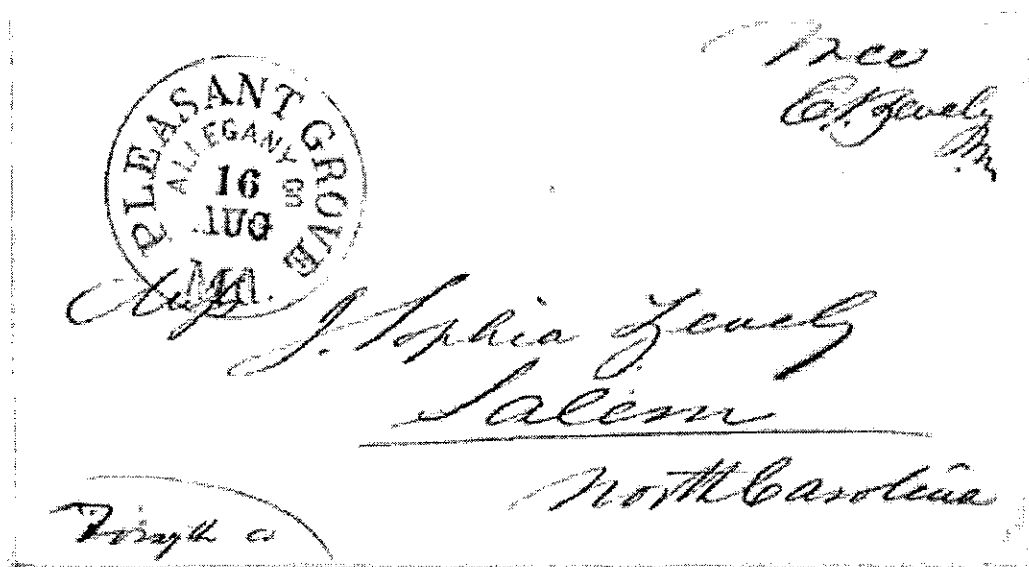 PLEASANT GROVE
ALLEGANY Co
16
AUG
Md.
Free
E.S. Zevely
P.M.
Miss
J. Sophia Zevely
Salem
North Carolina
Forsyth co